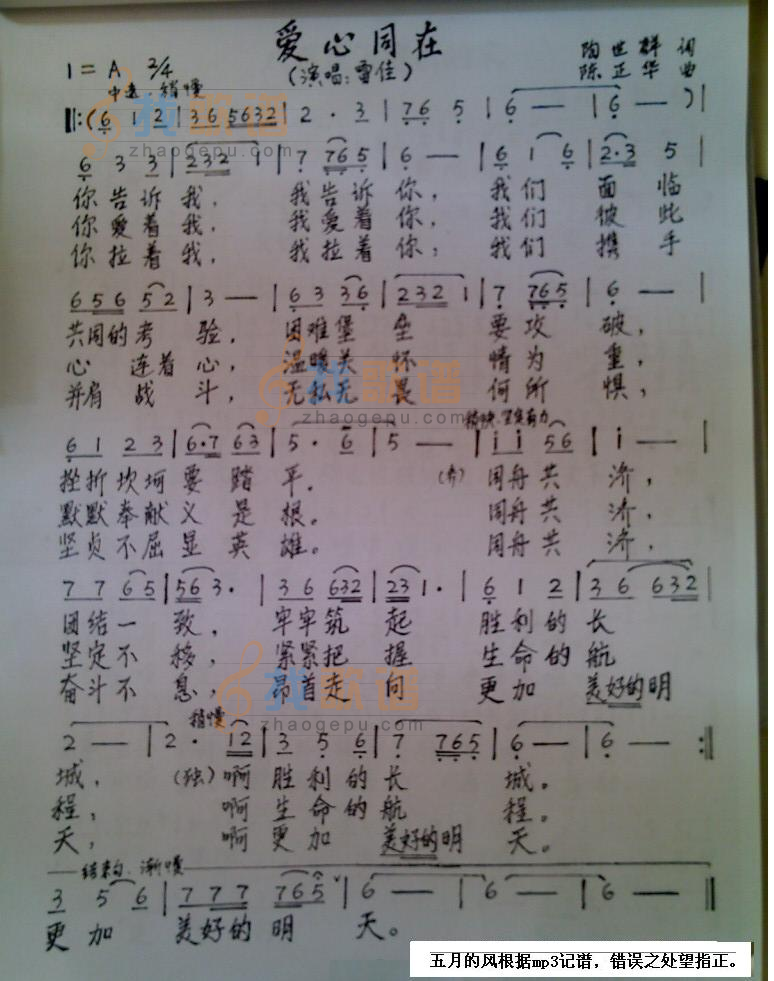 爱心同在
陶世群 词
1=A 2/4 (演唱:雷佳) 陈正华 曲
中速·稍慢
‖:(6 1 2 | 36 5632 | 2 · 3 | 76 5 | 6 — | 6 — ) |
6 3 3 | 232 1 | 7 765 | 6 — | 6 1 6 | 2·3 5 |
你告诉我, 我告诉你, 我们面临
你爱着我, 我爱着你, 我们彼此
你拉着我, 我拉着你, 我们携手
656 52 | 3 — | 63 36 | 232 1 | 7 765 | 6 — |
共同的考验, 困难堡垒要攻破,
心连着心, 温暖关怀情为重,
并肩战斗, 无私无畏何所惧,
稍快·坚定有力
61 23 | 6·7 63 | 5 · 6 | 5 — | i i 56 | i — |
挫折坎坷要踏平。 (齐) 同舟共济,
默默奉献义是根。 同舟共济,
坚贞不屈显英雄。 同舟共济,
77 65 | 56 3· | 36 632 | 23 1· | 6 1 2 | 36 632 |
团结一致, 牢牢筑起胜利的长
坚定不移, 紧紧把握生命的航
奋斗不息, 昂首走向更加美好的明
稍慢
2 — | 2 · 12 | 3 5 6 | 7 765 | 6 — | 6 — :‖
城, (独)啊胜利的长城。
程, 啊生命的航程。
天, 啊更加美好的明天。
结束句·渐慢
3 5 6 | 777 765 | 6 — | 6 — | 6 — ‖
更加美好的明天。
我歌谱
zhaogepu.com
我歌谱
zhaogepu.com
我歌谱
zhaogepu.com
五月的风根据mp3记谱，错误之处望指正。